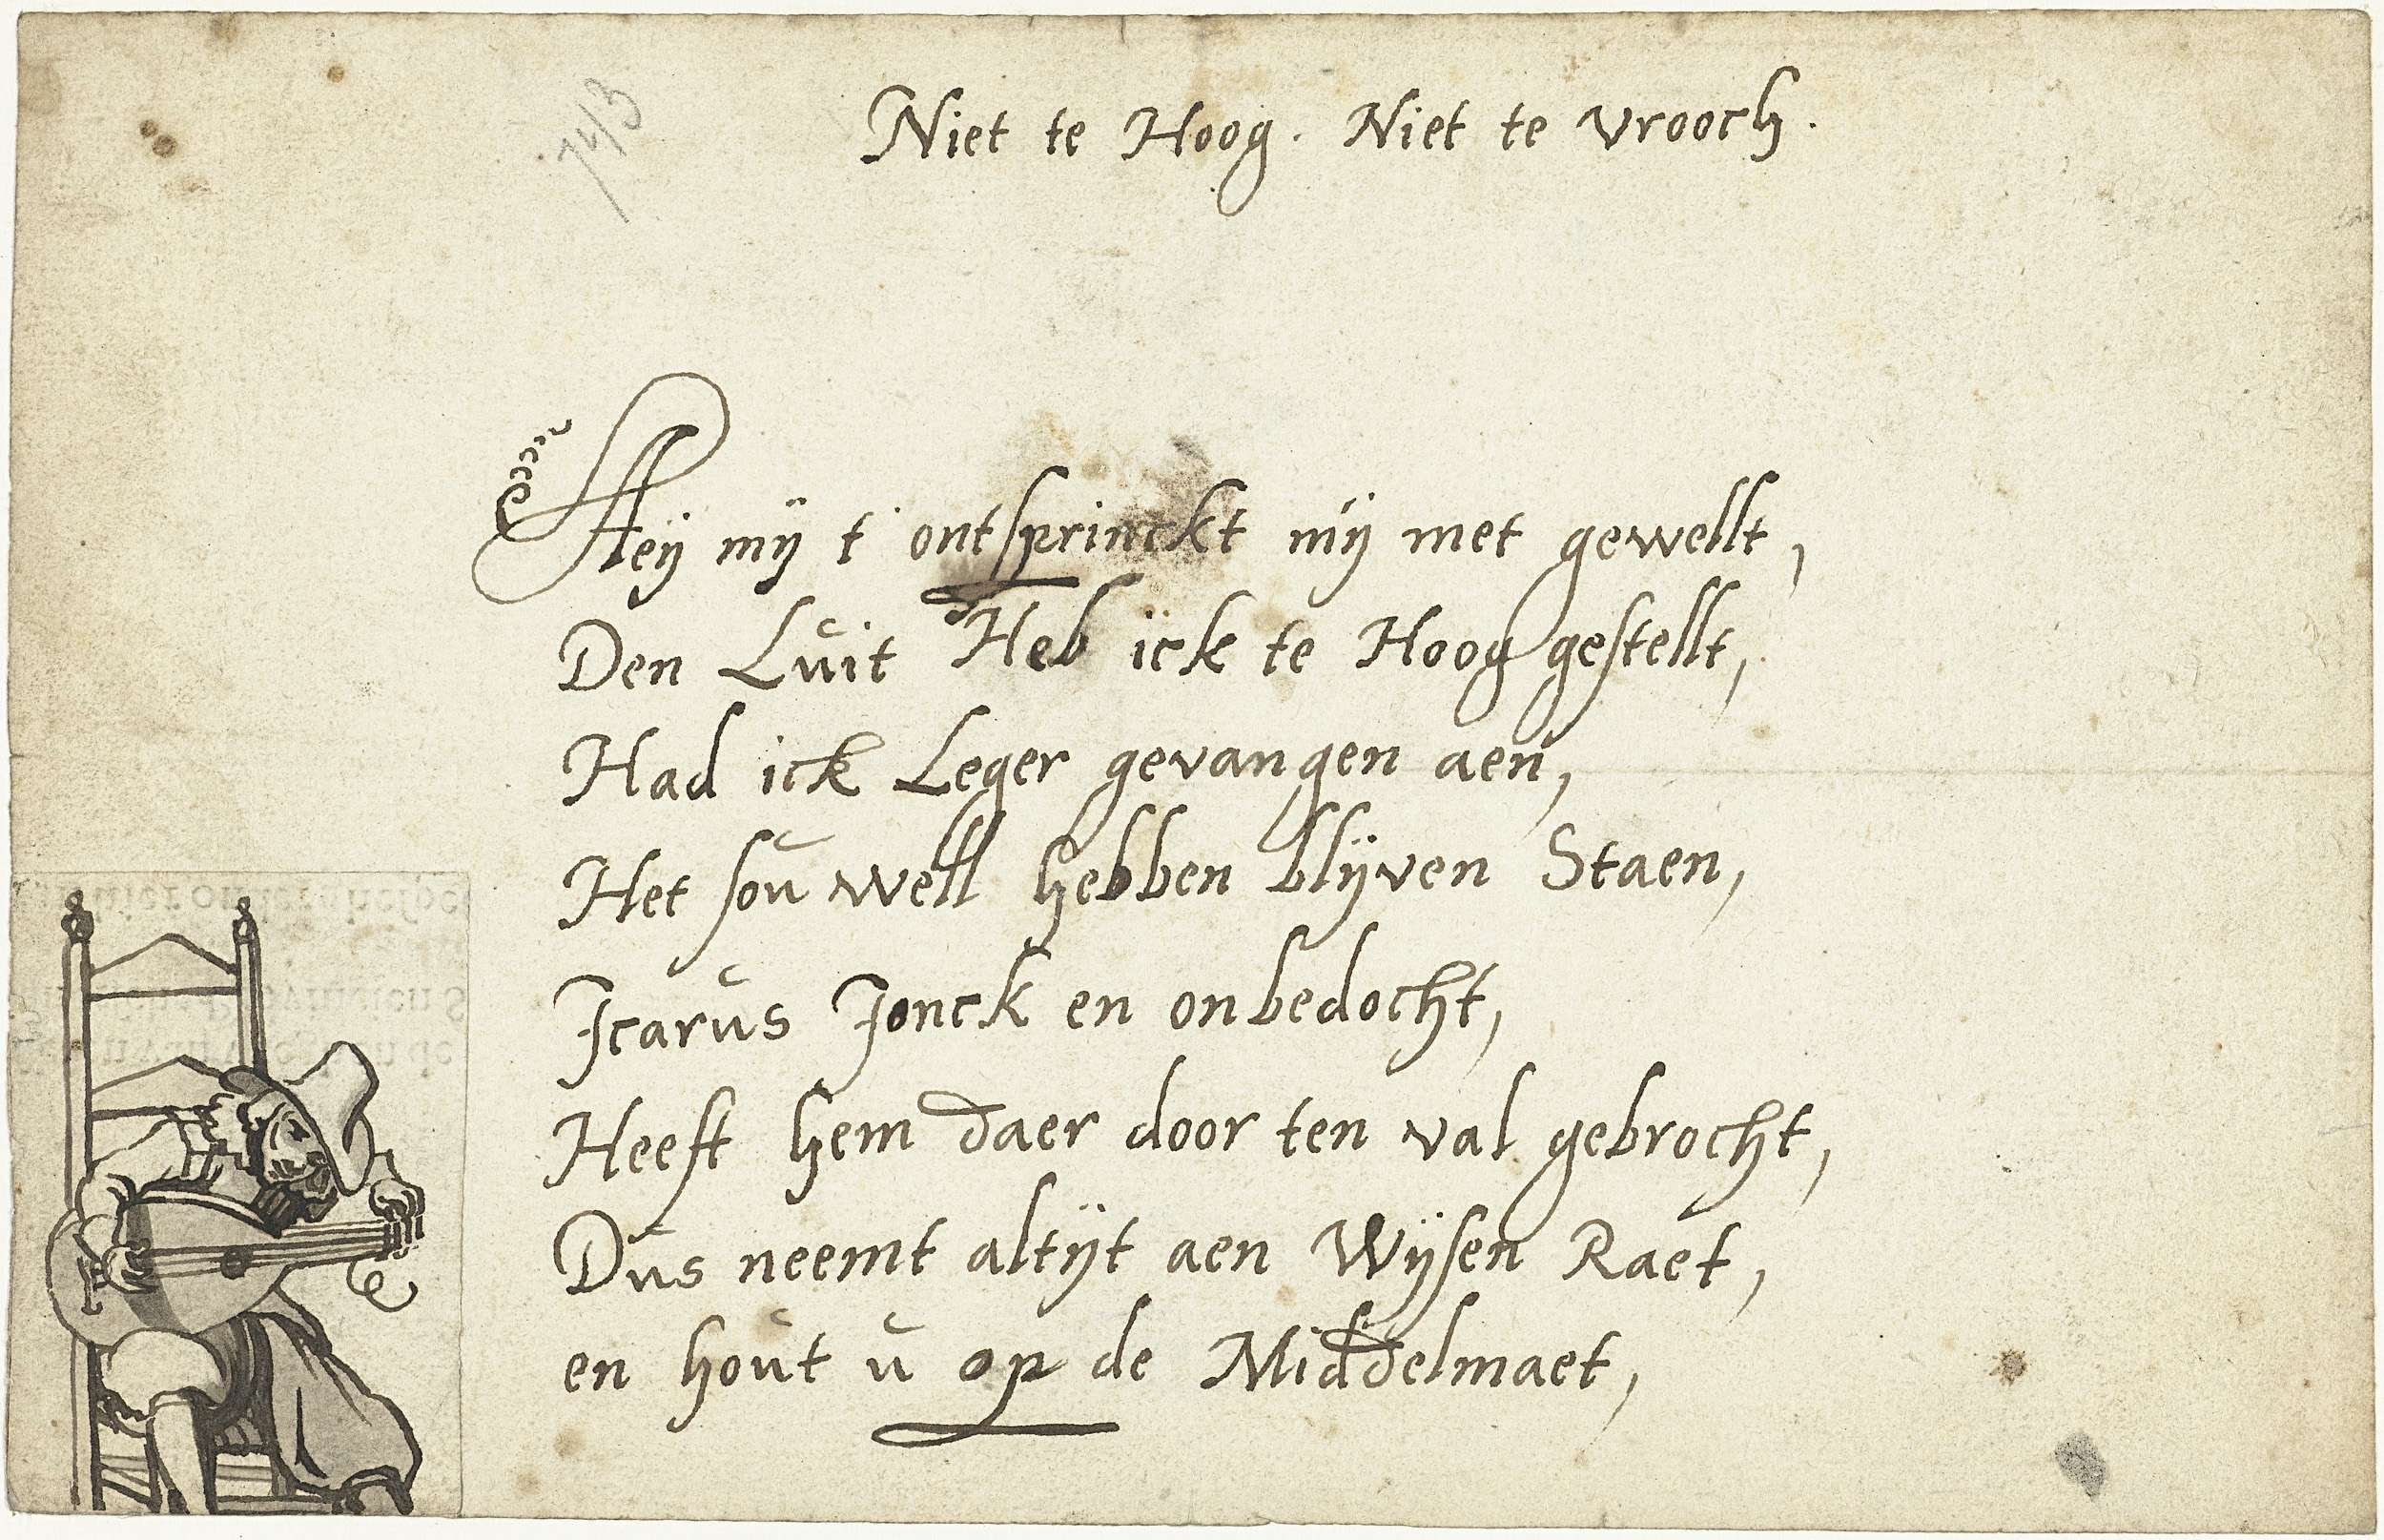 Niet te Hoog. Niet te vrooch.
Aeÿ mÿ t' ontsprinckt mÿ met gewellt,
Den Luit Heb ick te Hoog gestellt,
Had ick Leger gevangen aen,
Het sou well hebben blijven Staen,
Icarus Jonck en onbedocht,
Heeft hem daer door ten val gebrocht,
Dus neemt altijt aen Wijsen Raet,
en hout u op de Middelmaet,